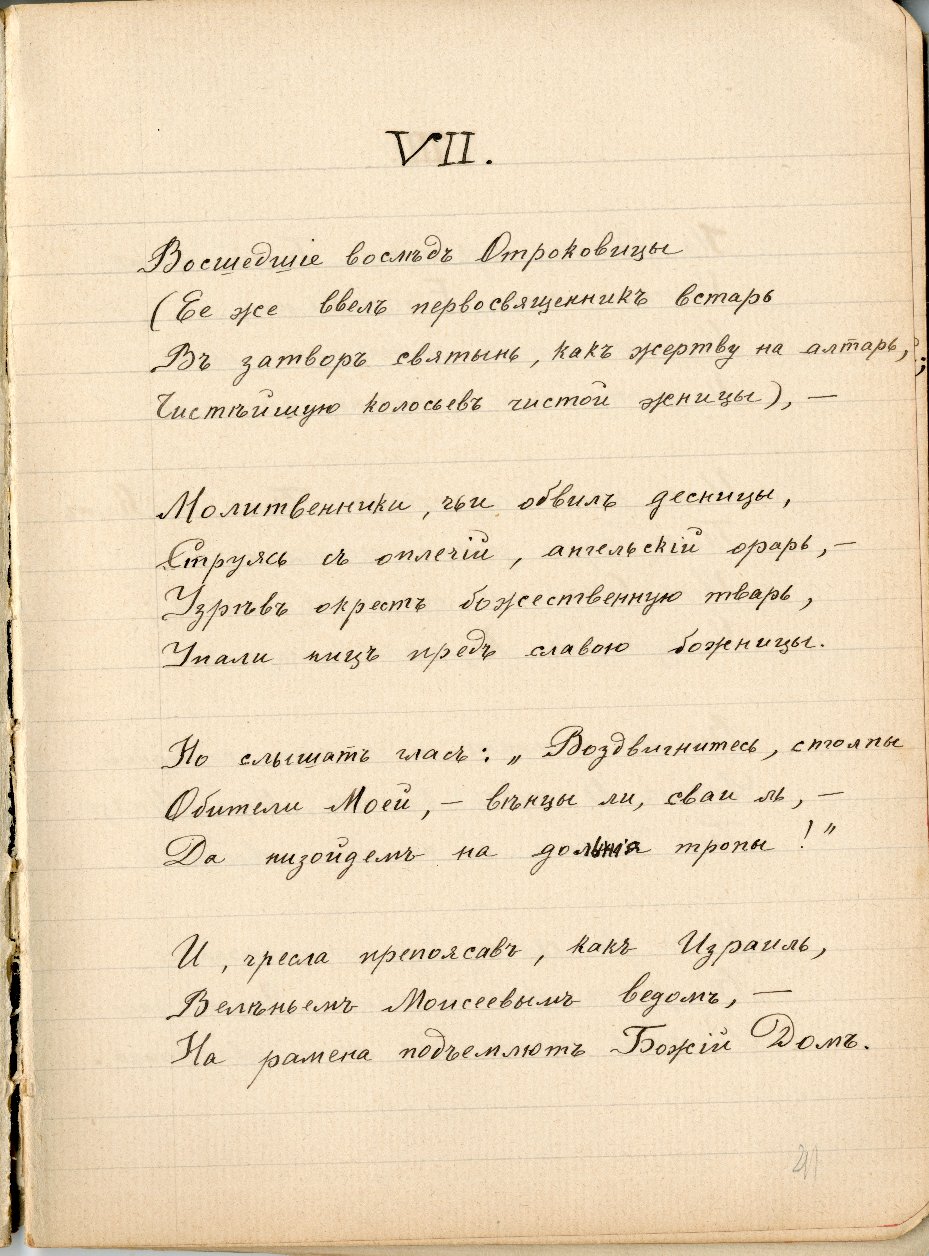 VII.
Восшедшіе вослѣдъ Отроковицы
(Ее же ввелъ первосвященникъ встарь
Въ затворъ святынь, какъ жертву на алтарь,
Чистѣйшую колосьевъ чистой жницы), —
Молитвенники, чьи обвилъ десницы,
Струясь съ оплечій, ангельскій орарь, —
Узрѣвъ окрестъ божественную тварь,
Упали ницъ предъ славою божницы.
Но слышатъ гласъ: „Воздвигнитесь, столпы
Обители Моей, — вѣнцы ли, сваи ль, —
Да низойдемъ на дольнія тропы!"
И, чресла препоясавъ, какъ Израиль,
Велѣньемъ Моисеевымъ ведомъ, —
На рамена подъемлютъ Божій Домъ.